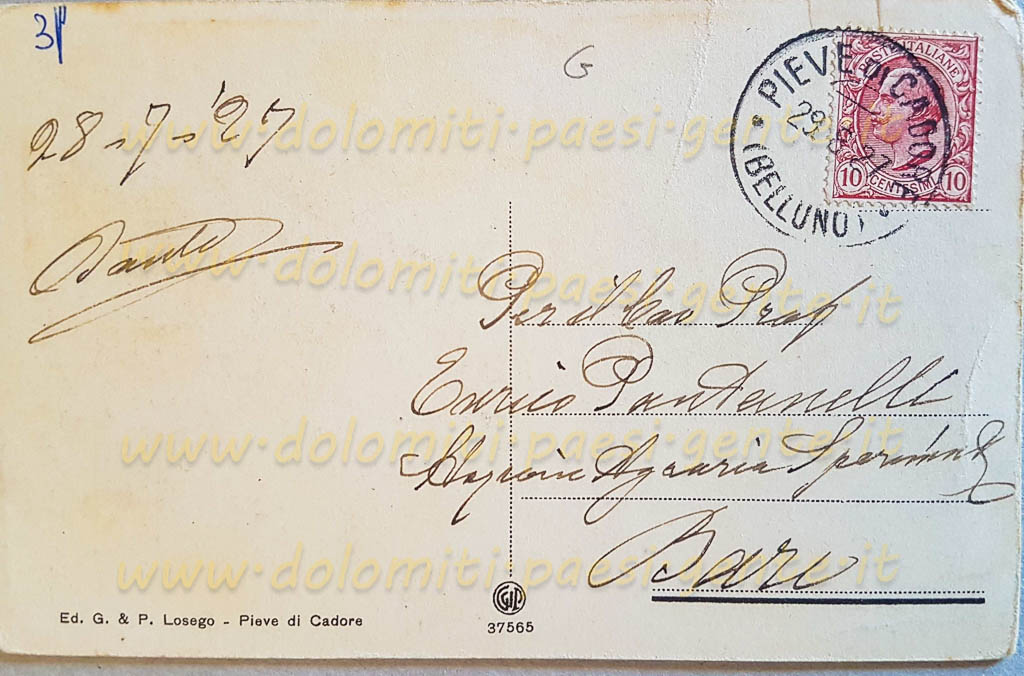 3
G
28-7-'27
Dante
PIEVE DI CADORE
29. 27
(BELLUNO)
POSTE ITALIANE
10 CENTESIMI 10
Per il Cav Prof
Enrico Pantanelli
Stazione Agraria Speriment
Bari
Ed. G. & P. Losego - Pieve di Cadore
37565
www.dolomiti-paesi-gente.it
www.dolomiti-paesi-gente.it
www.dolomiti-paesi-gente.it
www.dolomiti-paesi-gente.it